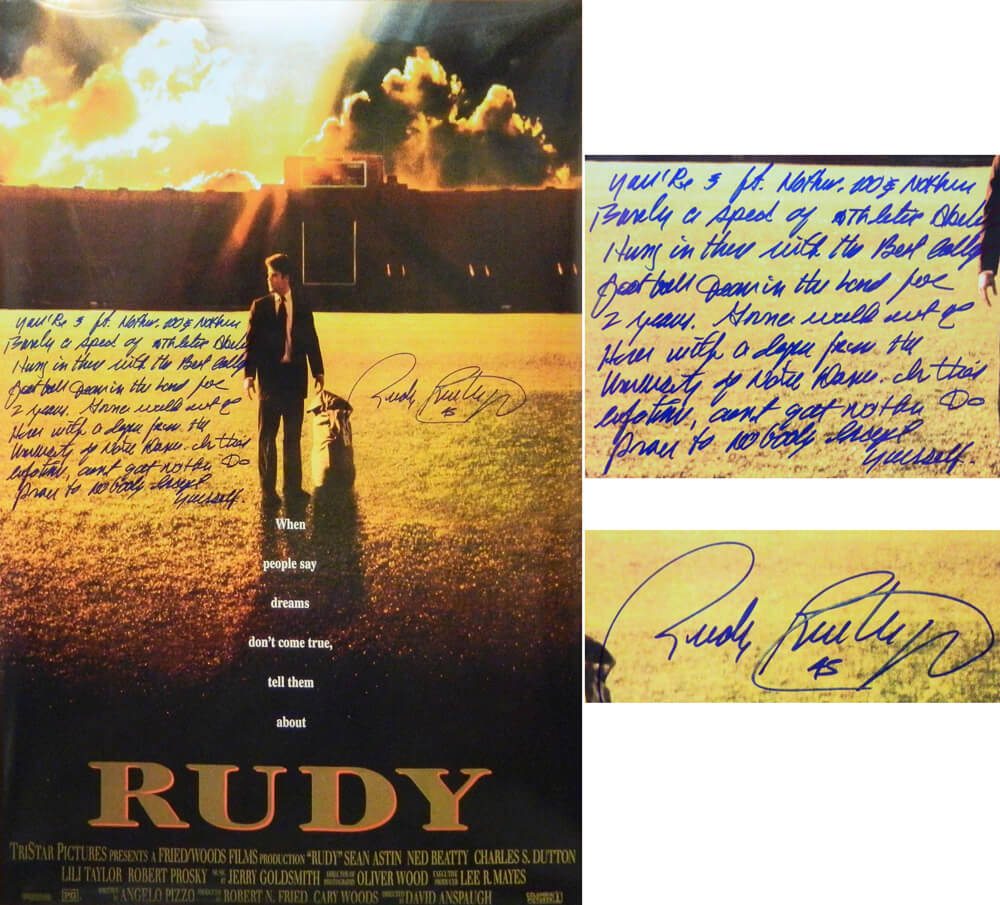 You'Re 5 ft. Nothin. 100 & Nothin
Barely a speck of athletic Abili
Hung in there with the Best colleg
football Team in the land for
2 years. Gonna walk out of
Here with a degree from the
University of Notre Dame. In this
lifetime, dont gott nothin
prove to nobody Except
yourself.
Rudy Ruettiger
45
When
people say
dreams
don't come true,
tell them
about
RUDY
TRISTAR PICTURES PRESENTS A FRIED/WOODS FILMS PRODUCTION "RUDY" SEAN ASTIN NED BEATTY CHARLES S. DUTTON
LILI TAYLOR ROBERT PROSKY MUSIC BY JERRY GOLDSMITH DIRECTOR OF PHOTOGRAPHY OLIVER WOOD EXECUTIVE PRODUCER LEE R. MAYES
WRITTEN BY ANGELO PIZZO PRODUCED BY ROBERT N. FRIED CARY WOODS DIRECTED BY DAVID ANSPAUGH
PG
You'Re 5 ft. Nothin. 100 & Nothin
Barely a speck of athletic Abili
Hung in there with the Best colleg
football Team in the land for
2 years. Gonna walk out of
Here with a degree from the
University of Notre Dame. In this
lifetime, dont gott nothin
prove to nobody Except
yourself.
Rudy Ruettiger
45